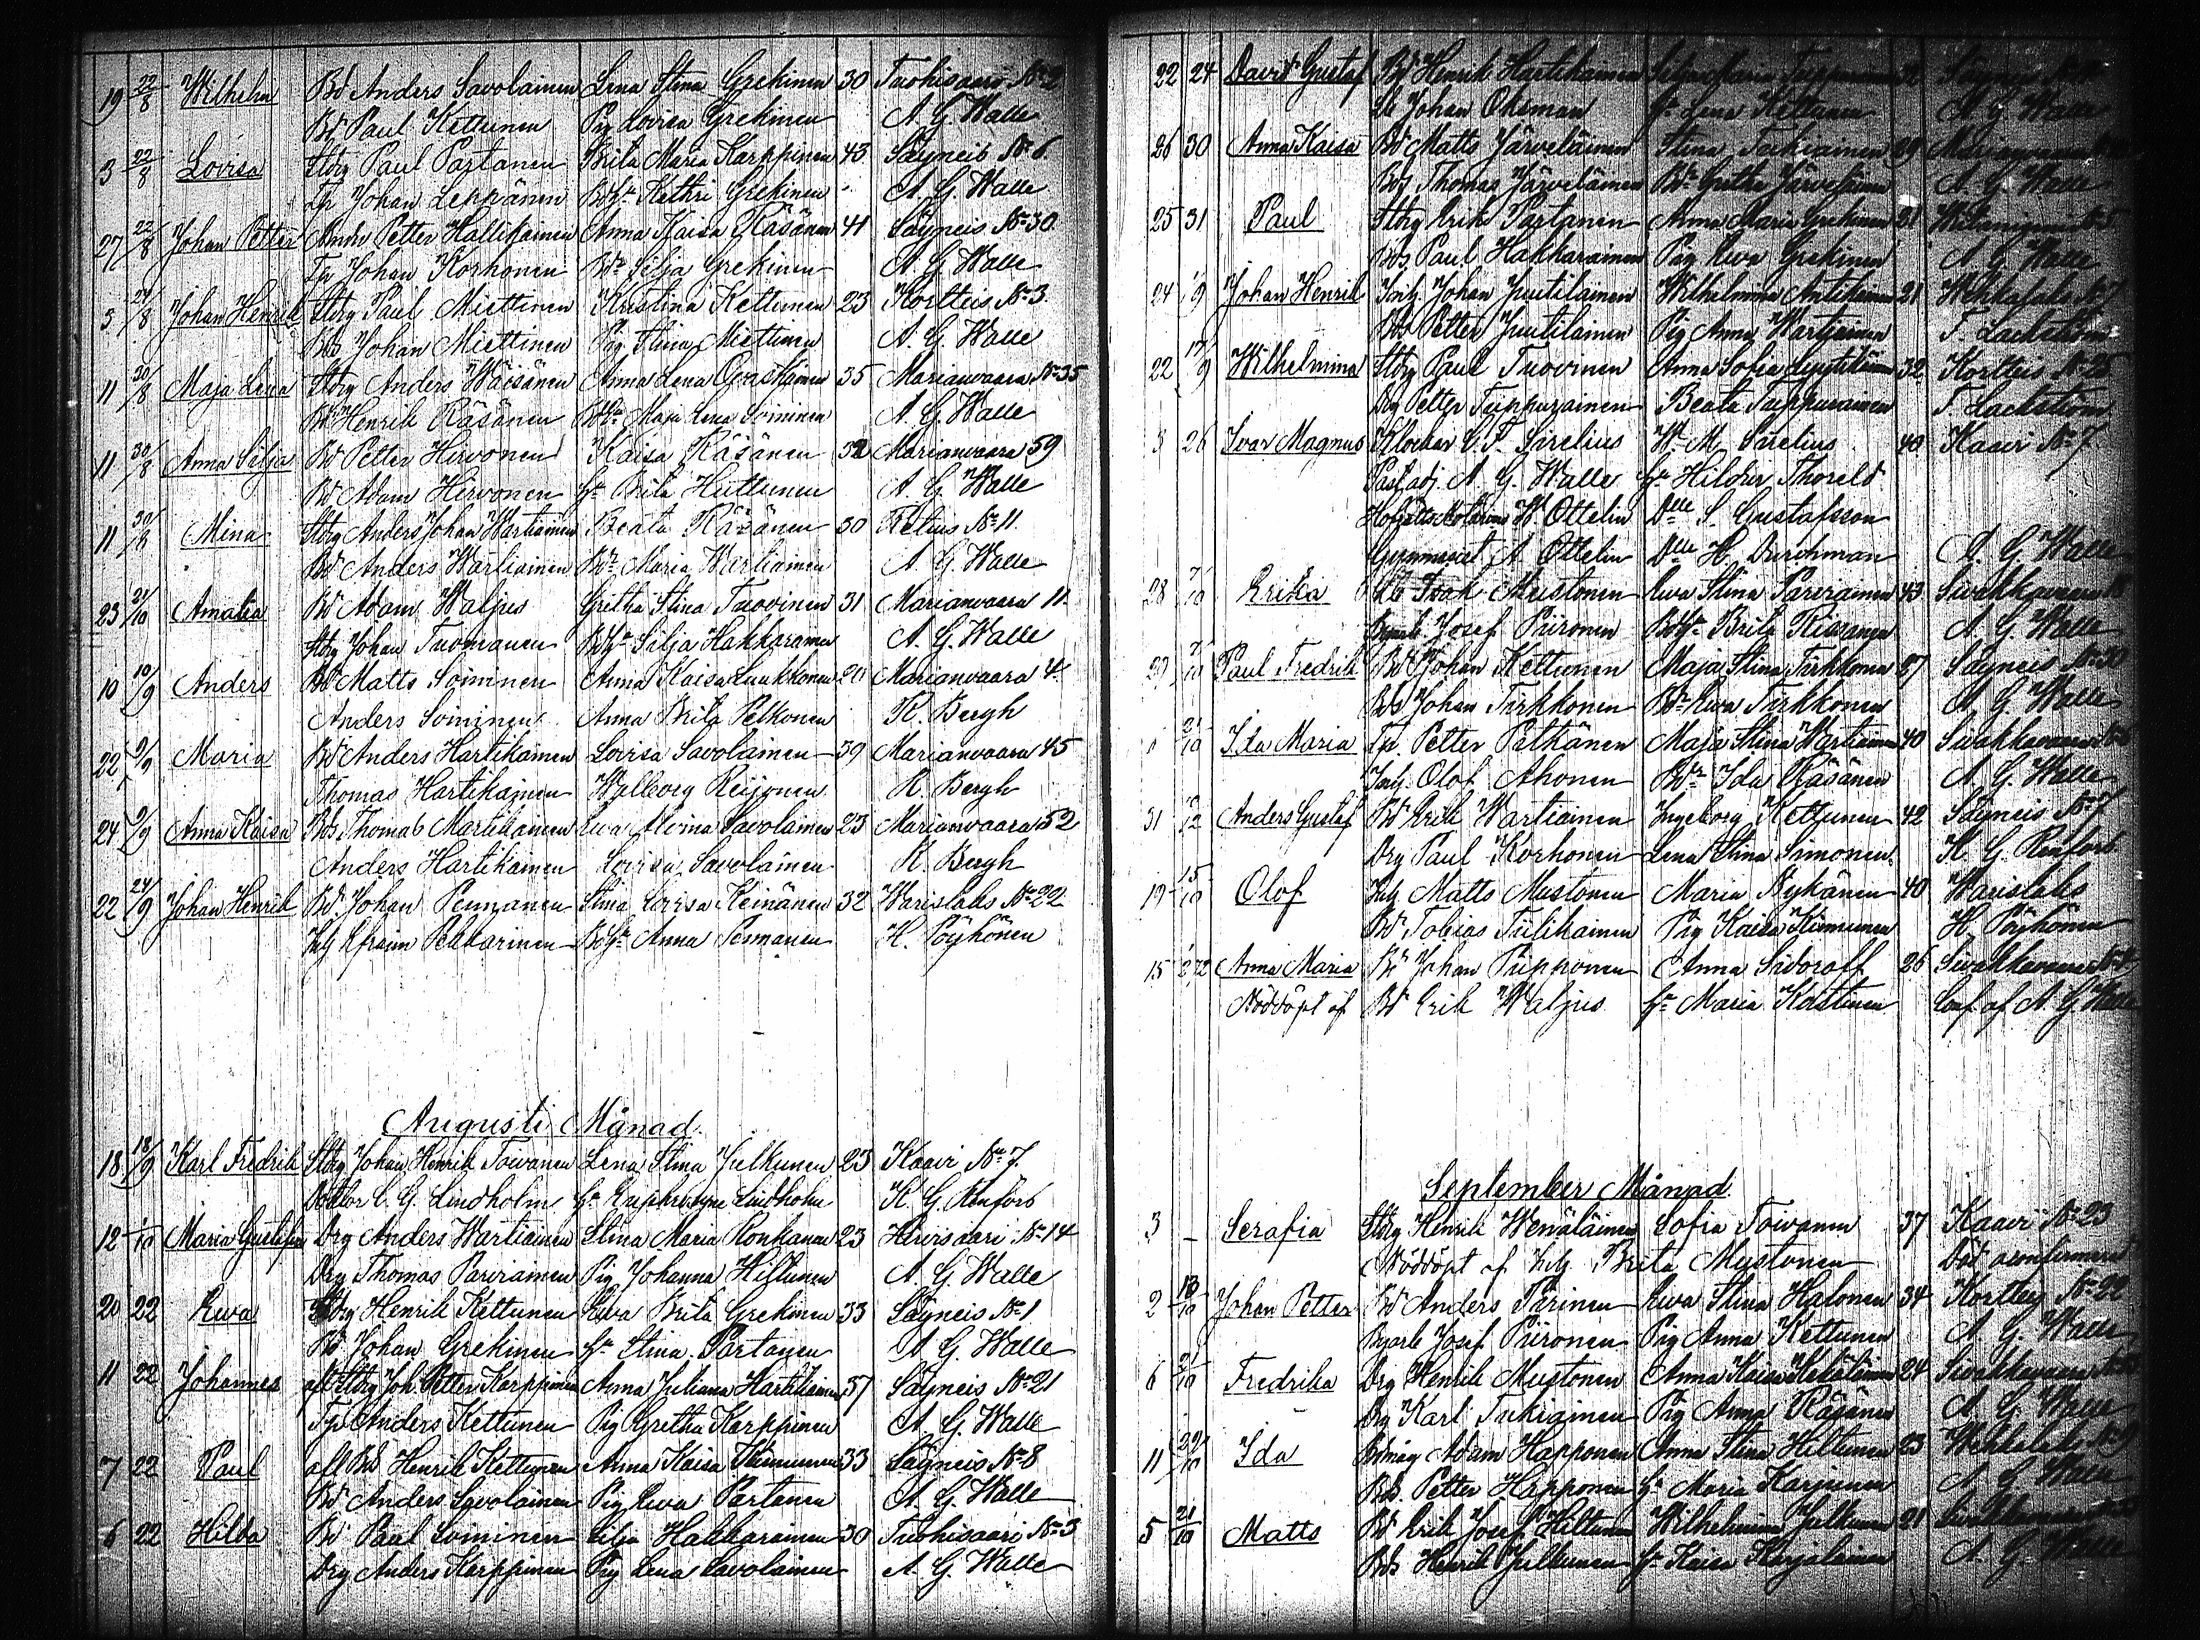 19 22/8 Wilhelm Bd Anders Savolainen Lena Stina Grekinen 30 Tuohisaari No 2
Bd Paul Kettunen Pig Lovisa Grekinen A. G. Walle
3 22/8 Lovisa Stbrg Paul Partanen Brita Maria Karppinen 43 Säyneis No 6
Tp Johan Leppänen Bdhu Kathri Grekinen A. G. Walle
27 22/8 Johan Petter Petter Hallikainen Anna Kaisa Räsänen 41 Säyneis No 30
Tp Johan Korhonen Silja Grekinen A. G. Walle
3 Johan Henrik Stbrg Paul Miettinen Kristina Kettunen 23 Kortteis No 3
Bds Johan Miettinen Pig Stina Miettinen A. G. Walle
11 30/8 Maja Lena Stbrg Anders Wäisänen Anna Lena 35 Marianvaara No 35
Bd Henrik Räsänen Maja Lena Soininen A. G. Walle
11 30/8 Anna Silja Bd Petter Hirvonen Kaisa Räsänen 32 Marianvaara 59
Bd Adam Hirvonen Hu Brita Huttunen A. G. Walle
11 30/8 Mina Stbrg Anders Johan Wartiainen Beata Räsänen 30 No 11
Bd Anders Wartiainen Maria Wartiainen A. G. Walle
23 21/10 Amalia Bd Adam Waljus Gretha Stina Tuovinen 31 Marianvaara 11
Stbrg Johan Tuomainen Bdhu Silja Hakkarainen A. G. Walle
10 10/9 Anders Bd Matts Soininen Anna Kaisa Luukkonen 20 Marianvaara 4
Anders Soininen Anna Brita Pelkonen K. Bergh
22 9/9 Maria Bd Anders Hartikainen Lovisa Savolainen 39 Marianvaara 45
Thomas Hartikainen Walborg Reijonen K. Bergh
24 9/9 Anna Kaisa Bds Thomas Martikainen Ewa Alvina Savolainen 23 Marianvaara 52
Anders Hartikainen Lovisa Savolainen K. Bergh
22 24/9 Johan Henrik Bd Johan Pennanen Stina Lovisa Keinänen 32 Warislaks No 22
Inh Efraim Pekkarinen Bdhu Anna Pennanen H. Pöyhönen
Augusti Månad.
18 18/9 Karl Fredrik Stbrg Johan Henrik Toivanen Lena Stina Julkunen 23 Kaavi No 7
Doktor C. G. Lindholm Hu Euphrosyne Lindholm K. G. Renfors
12 1/10 Maria Gustafva Drg Anders Wartiainen Stina Maria Ronkanen 23 Hirvisaari No 14
Drg Thomas Parviainen Pig Johanna Hiltunen A. G. Walle
20 22 Ewa Stbrg Henrik Kettunen Ewa Brita Grekinen 33 Säyneis No 1
Bd Johan Grekinen Hu Stina Partanen A. G. Walle
11 22 Johannes afl Stbrg Joh. Petter Karppinen Anna Juliana Hartikainen 37 Säyneis No 21
Tp Anders Kettunen Pig Gretha Karppinen A. G. Walle
7 22 Paul afl Bd Henrik Kettunen Anna Kaisa Kinnunen 33 Säyneis No 8
Bd Anders Savolainen Pig Ewa Partanen A. G. Walle
6 22 Hilda Bd Paul Soininen Silja Hakkarainen 30 Tuohisaari No 3
Drg Anders Karppinen Pig Lena Savolainen A. G. Walle
22 24 David Gustaf Bd Henrik Hartikainen
Johan Oksman Hu Lena Kettunen A. G. Walle
26 30 Anna Kaisa Bd Matts Järveläinen Stina Tukiainen
Bds Thomas Järveläinen Gretha Järveläinen A. G. Walle
25 31 Paul Stbrg Erik Partanen Anna Maria Grekinen 31
Bds Paul Hakkarainen Pig Ewa Grekinen A. G. Walle
24 Johan Henrik Inh Johan Juutilainen Wilhelmina Antikainen 21
Bds Petter Juutilainen Pig Anna Wartiainen F. Lackström
22 17/9 Wilhelmina Stbrg Paul Tuovinen Anna Sofia 32 Kortteis No 25
Drg Petter Tuppurainen Beata Tuppurainen F. Lackström
3 26 Ivar Magnus Klockar C. F. Sirelius W. M. Sirelius 40 Kaavi No 7
Past.adj. A. G. Walle Hu Hildur Thoreld
W. Ottelin Dlle S. Gustafsson
A. Ottelin Dlle H. Durchman A. G. Walle
28 7/10 Erika Isak Mustonen Ewa Stina Parviainen 43
Josef Piironen Bdhu Brita Rissanen A. G. Walle
7/10 Paul Fredrik Bd Johan Kettunen Maja Stina Tirkkonen 37 Säyneis No 30
Bds Johan Tirkkonen Ewa Tirkkonen A. G. Walle
21/10 Ida Maria Tp. Petter Pitkänen Maja Stina Wartiainen 40
Inh. Olof Ahonen Ida Räsänen A. G. Walle
31 Anders Gustaf Bd Erik Wartiainen Ingeborg Kettunen 42 Säyneis No 7
Drg Paul Korhonen Lena Stina Simonen K. G. Renfors
19 15/10 Olof Inh Matts Mustonen Maria Nykänen 40 Warislaks
Bd Tobias Tulikainen Pig Kaisa Kinnunen H. Pöyhönen
15 Anna Maria Bd Johan Piipponen Anna Sidoroff 26
Nöddöpt af Bd Erik Waljus Hu Maria Koistinen Conf. af A. G. Walle
September Månad.
3 – Serafia Stbrg Henrik Wenäläinen Sofia Toivanen 37 Kaavi No 23
Nöddöpt af Inh Brita Mustonen Död oconfirmerad
2 13/10 Johan Petter Bd Anders Parinen Ewa Stina Halonen 34 Kortteis No 22
Josef Piironen Pig Anna Kettunen A. G. Walle
6 21/10 Fredrika Drg Henrik Mustonen Anna Kaisa 24
Drg Karl Tukiainen Pig Anna Räsänen A. G. Walle
11 Ida Adam Happonen Anna Stina Hiltunen 23
Bds. Petter Happonen Hu Maria A. G. Walle
5 21/10 Matts Bd Erik Josef Hiltunen Wilhelmina Julkunen 21
Bds Henrik Julkunen Hu Kaisa Karjalainen A. G. Walle